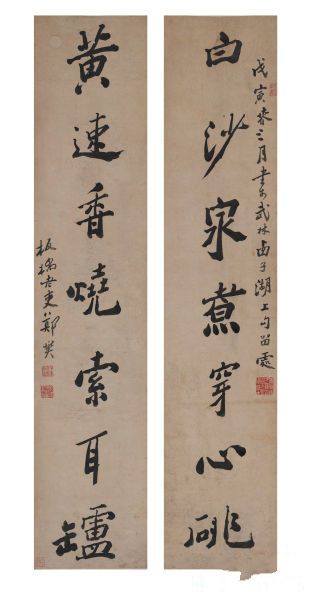 白沙泉煮穿心
戊寅春三月書於武林西子湖上勾留處
黃速香燒索耳罏
板橋老鄭燮